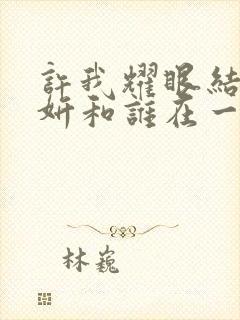 許我耀眼結
妍和誰在一
林巍